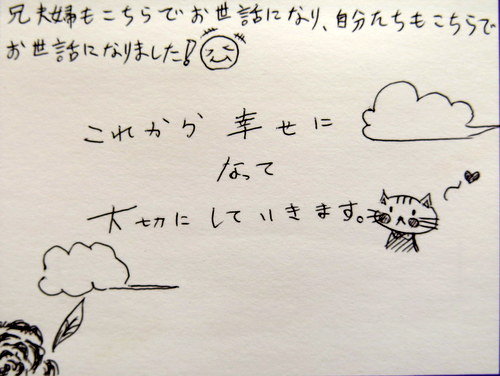 兄夫婦もこちらでお世話になり、自分たちもこちらで
お世話になりました!
これから幸せに
なって
大切にしていきます。